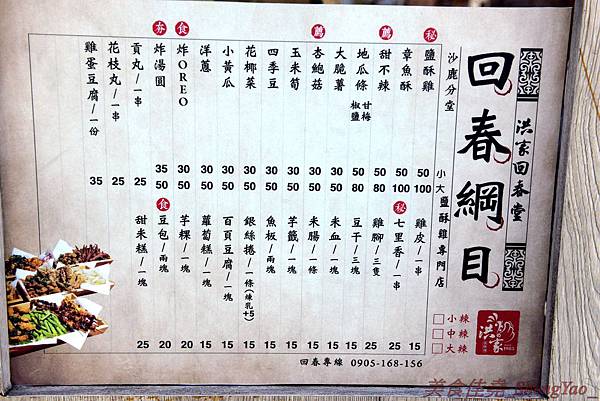 洪家回春堂
回春綱目
沙鹿分堂
小大鹽酥雞專門店
秘 鹽酥雞 50 100
章魚酥 50 100
甜不辣 50 80
地瓜條 甘梅 椒鹽 50 80
大脆薯 30 50
薦 杏鮑菇 30 50
玉米筍 30 50
四季豆 30 50
花椰菜 30 50
小黃瓜 30 50
洋蔥 30 50
食 炸OREO 30 50
夯 炸湯圓 35 50
貢丸/一串 25
花枝丸/一串 25
雞蛋豆腐/一份 35
雞皮/一串 15
秘 七里香/一串 25
雞腳/三隻 25
豆干/三塊 15
米血/一塊 15
米腸/一條 15
芋籤/一塊 15
魚板/兩塊 15
銀絲捲/一條(煉乳+5) 25
百頁豆腐/一塊 25
蘿蔔糕/一塊 15
芋粿/一塊 20
食 豆包/兩塊 20
甜米糕/一塊 25
小辣
中辣
大辣
洪家
回春專線 0905-168-156
美食佳堯 ShangYao_